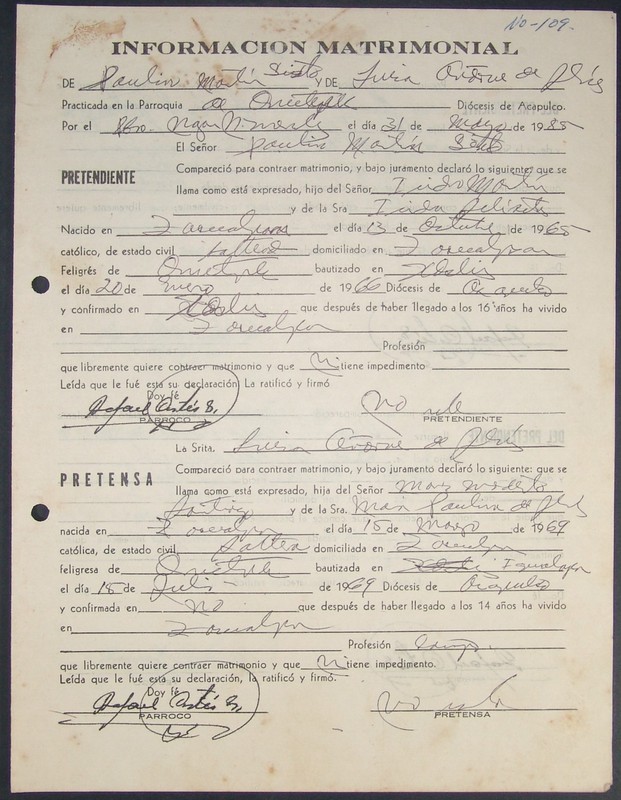 No-109.
INFORMACION MATRIMONIAL
DE Paulin Martin Sixto Y DE Luisa Añorve de Jesús
Practicada en la Parroquia de Ometepec Diócesis de Acapulco.
Por el Pbro. el día 31 de Mayo de 1985
El Señor Paulin Martin Sixto
PRETENDIENTE
Compareció para contraer matrimonio, y bajo juramento declaró lo siguiente: que se
llama como está expresado, hijo del Señor Isidro Martin
y de la Sra.
Nacido en el día 13 de Octubre de 1965
católico, de estado civil soltero domiciliado en
Feligrés de Ometepec bautizado en
el día 20 de Enero de 1966 Diócesis de Acapulco
y confirmado en que después de haber llegado a los 16 años ha vivido
en
Profesión
que libremente quiere contraer matrimonio y que no tiene impedimento
Leída que le fué esta su declaración. La ratificó y firmó
Doy fé
Rafael Cortés S.
PARROCO
No sabe
PRETENDIENTE
La Srita. Luisa Añorve de Jesús
PRETENSA
Compareció para contraer matrimonio, y bajo juramento declaró lo siguiente: que se
llama como está expresado, hija del Señor
y de la Sra. Paulina de Jesús
nacida en el día 15 de Marzo de 1969
católica, de estado civil soltera domiciliada en
feligresa de Ometepec bautizada en Igualapa
el día 18 de Julio de 1969 Diócesis de Acapulco
y confirmada en No que después de haber llegado a los 14 años ha vivido
en
Profesión campo
que libremente quiere contraer matrimonio y que no tiene impedimento.
Leída que le fué esta su declaración, la ratificó y firmó.
Doy fé
Rafael Cortés S.
PARROCO
No sabe
PRETENSA